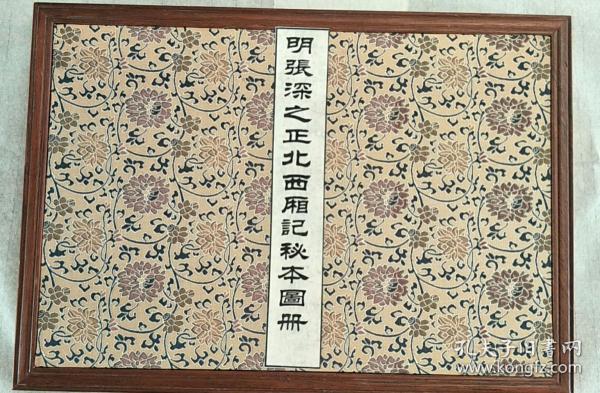 明張深之正北西廂記秘本圖册
孔夫子旧書网
www.kongfz.com